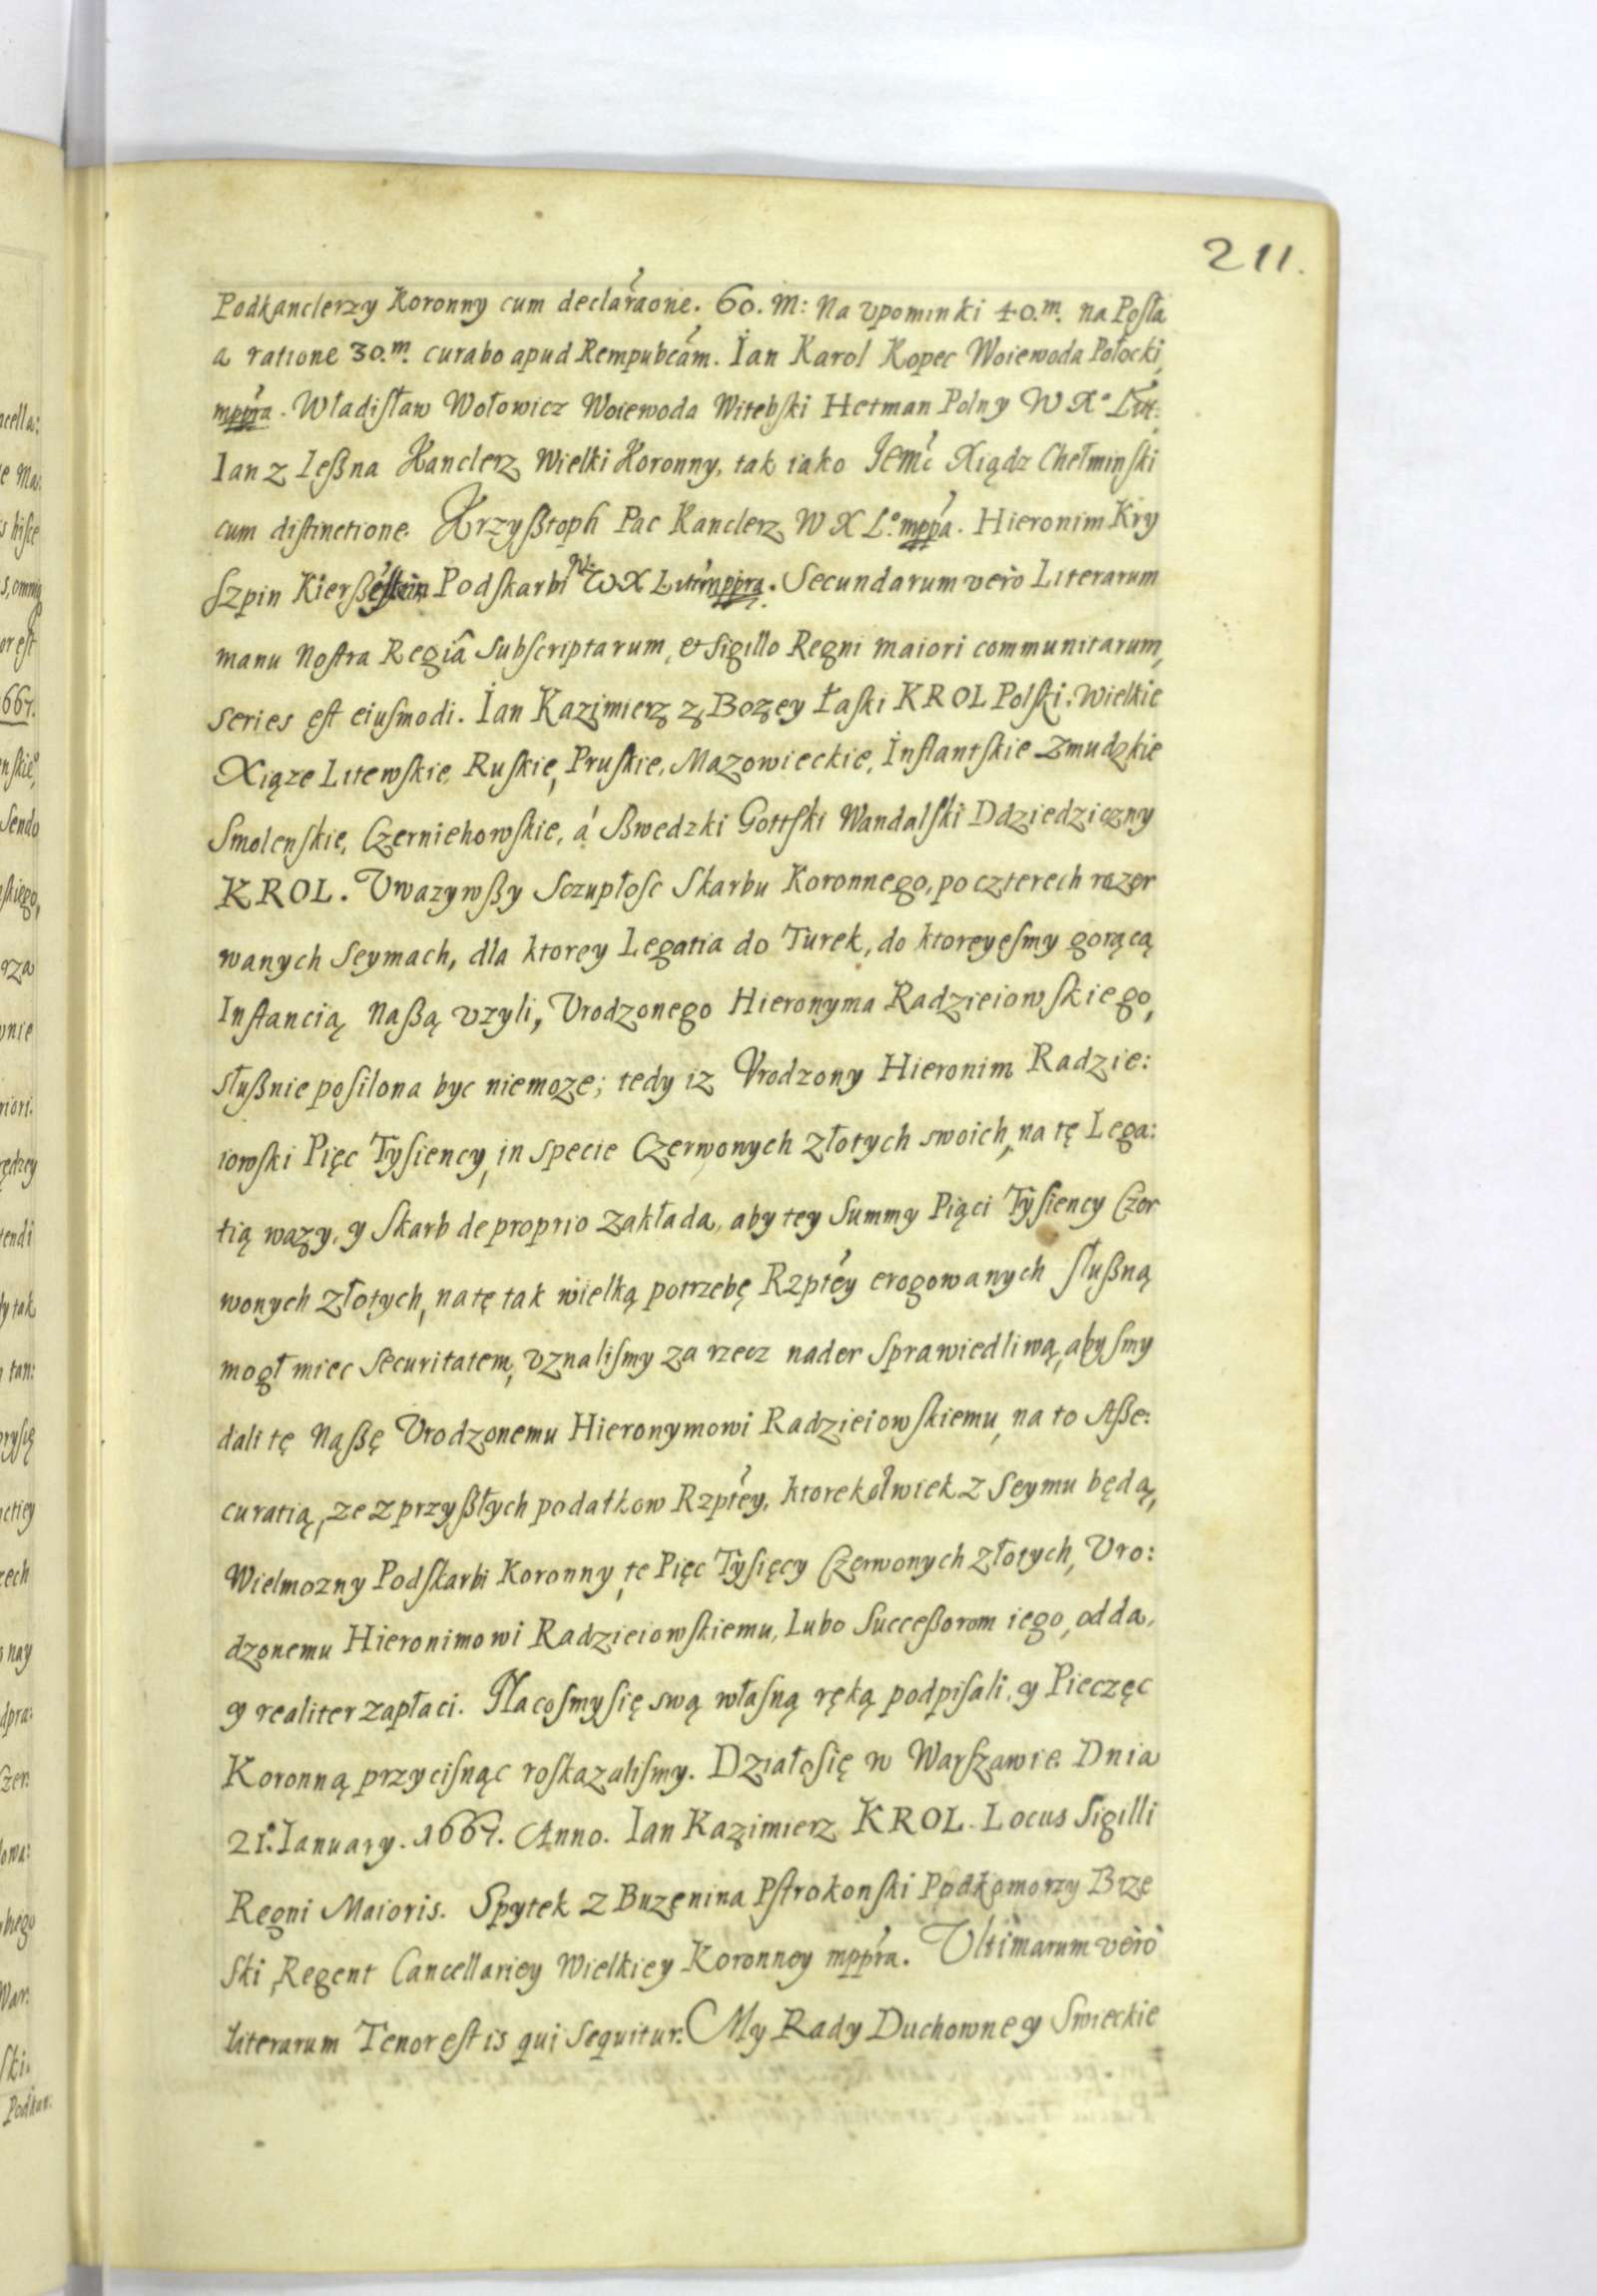 211.
Podkanclerzy Koronny cum declaraone. 60. m: Na vpominki 40.m. na Posła
a ratione 30.m. curabo apud Rempubcam. Ian Karol Kopec Woiewoda Połocki,
mppra. Władisław Wołowicz Woiewoda Witebski Hetman Polny W X° Litt:
Ian z Leßna Kanclerz Wielki Koronny, tak iako Jemc Xiądz Chełminski
cum distinctione. Krzyßtoph Pac Kanclerz W X L° mppa. Hieronim Kry
szpin Podskarbi W. W X Litt mppra. Secundarum vero Literarum
manu Nostra Regiâ Subscriptarum, et Sigillo Regni maiori communitarum,
series est eiusmodi. Ian Kazimierz z Bozey Łaski KROL Polski, Wielkie
Xiąze Litewskie, Ruskie, Pruskie, Mazowieckie, Inflantskie Zmudzkie
Smolenskie, Czerniehowskie, á Swedzki Gottski Wandalski Ddziedziczny
KROL. Vwazywßy Sczupłosc Skarbu Koronnego, po czterech rozer
wanych Seymach, dla ktorey Legatia do Turek, do ktoreyesmy gorącą
Instancią Naßą vzyli, Vrodzonego Hieronyma Radzieiowskiego,
słußnie posilona byc niemoze; tedy iz Vrodzony Hieronim Radzie:
iowski Pięc Tysiency, in specie Czerwonych złotych swoich, na tę Lega:
tią wazy, y Skarb de proprio zakłada, aby tey Summy Piąci Tysiency Czer
wonych złotych, na tę tak wielką potrzebę Rzptey erogowanych słußną
mogł miec Securitatem, vznalismy za rzecz nader Sprawiedliwą, abysmy
dali tę Naßę Vrodzonemu Hieronymowi Radzieiowskiemu, na to Aße:
curatią, ze z przyßłych podatkow Rzptey, ktorekolwiek z Seymu będą,
Wielmozny Podskarbi Koronny, te Pięc Tysięcy Czerwonych złotych, Vro:
dzonemu Hieronimowi Radzieiowskiemu, Lubo Succeßorom iego, odda,
y realiter zapłaci. Na cosmysię swą własną ręką podpisali, y Pieczęc
Koronną przycisnąc roskazalismy. Działosię w Warszawie. Dnia
21. Ianuary. 1667. Anno. Ian Kazimierz KROL. Locus Sigilli
Regni Maioris. Spytek z Buzenina Pstrokonski Podkomorzy Brze
ski, Regent Cancellariey Wielkiey Koronney mppra. Vltimarum vero
literarum Tenor est is qui Sequitur. My Rady Duchowne y Swieckie